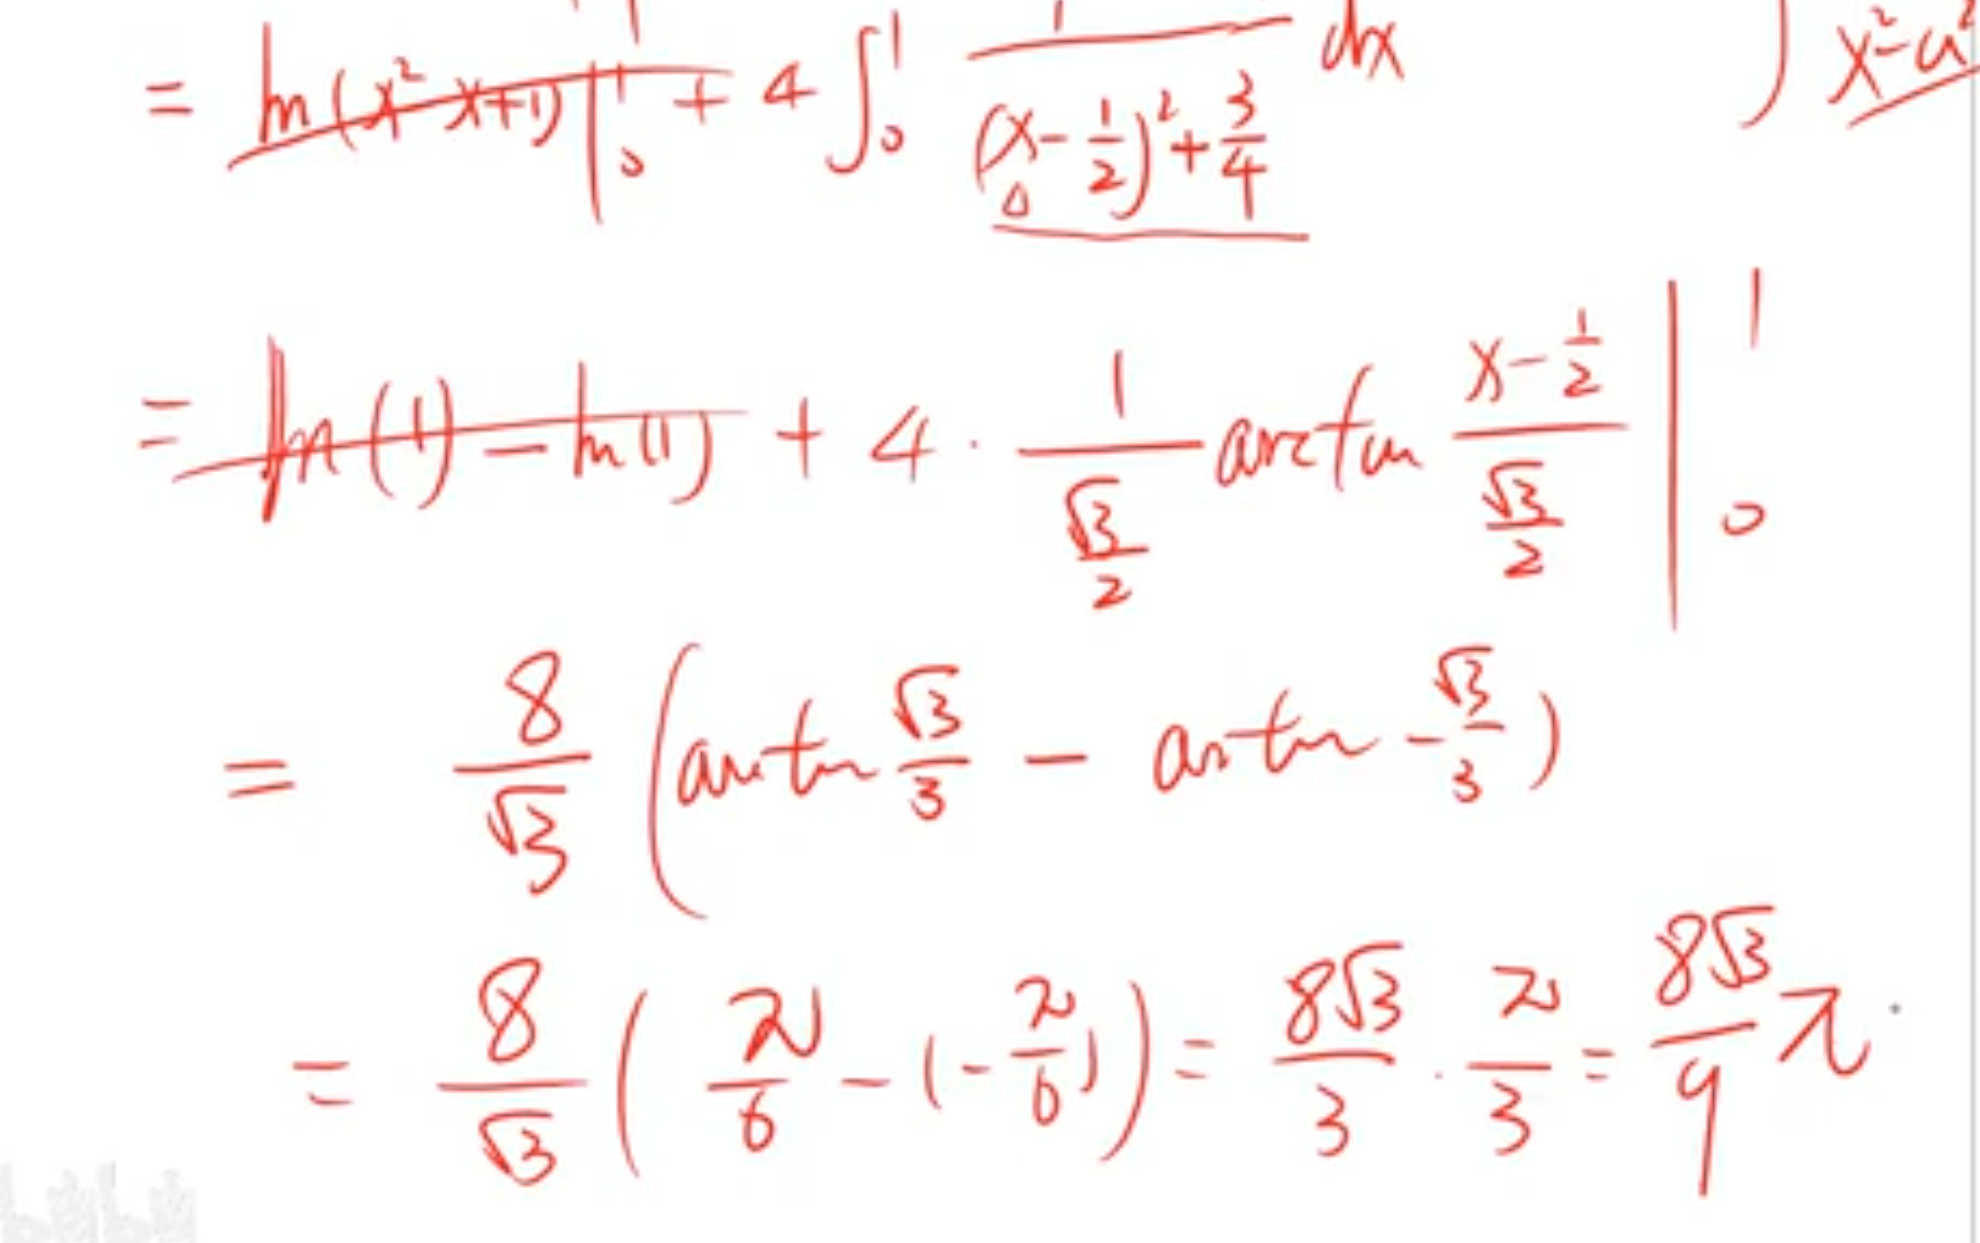 = ln(x² x+1) |₀¹ + 4 ∫₀¹ 1/((x-1/2)²+3/4) dx
∫ x²-a²
= ln(1) - ln(1) + 4 · 1/(√3/2) arctan (x-1/2)/(√3/2) |₀¹
= 8/√3 (arctan √3/3 - arctan -√3/3)
= 8/√3 (π/6 - (-π/6)) = 8√3/3 · π/3 = 8√3/9 π.
bilibili